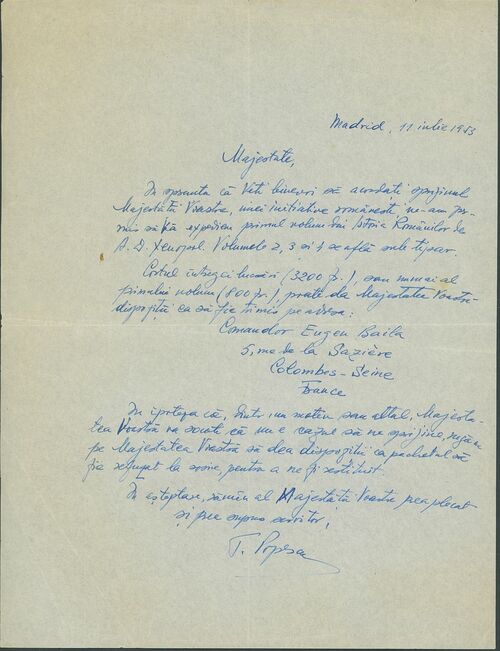 Madrid, 11 iulie 1953
Majestate,
In speranta că Vĕti binevoi să acordati sprijinul
Majestătii Voastre, unei initiative românesti, ne-am per-
mis să Vă expediem primul volum din Istoria Românilor de
A. D. Xenopol. Volumele 2, 3 si 4 se află sub tipar.
Costul intregei lucrări (3200 fr.), sau numai al
primului volum (800 fr.), poate da Majestatea Voastră
dispozitii ca să fie trimis pe adresa:
Comandor Eugen Baila
5, rue de la Sazière
Colombes-Seine
France
In ipoteza că, dintr'un motiv sau altul, Majesta-
tea Voastră va socoti că nu e cazul să ne sprijine, rugăm
pe Majestatea Voastră să dea dispozitii ca pachetul să
fie refuzat la sosire, pentru a ne fi restituit.
In asteptare, rămân al Majestătii Voastre prea plecat
si prea supus servitor,
T. Popescu